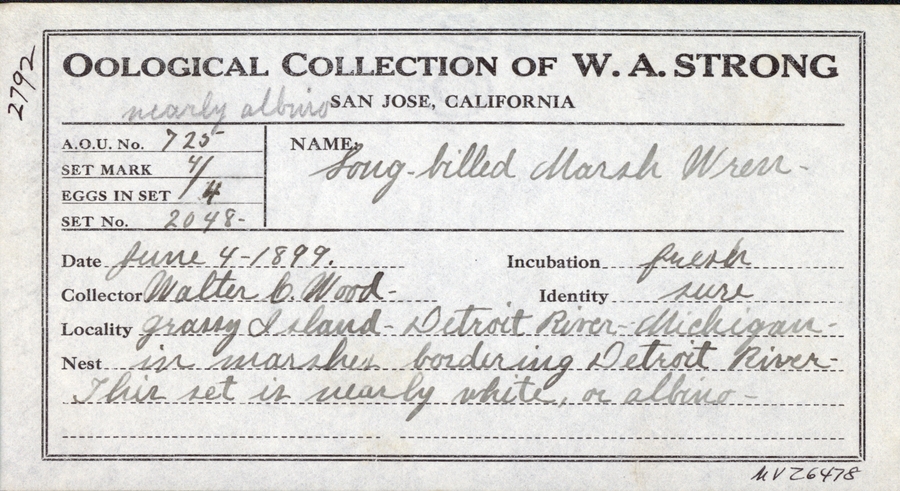 2792
OOLOGICAL COLLECTION OF W. A. STRONG
nearly albino SAN JOSE, CALIFORNIA
A.O.U. No. 725
SET MARK 4/
EGGS IN SET /4
SET No. 2048-
NAME: Long-billed Marsh Wren-
Date June 4-1899.
Incubation fresh
Collector Walter C. Wood-
Identity sure
Locality Grassy Island- Detroit River- Michigan-
Nest in marshes bordering Detroit River-
This set is nearly white, or albino-
MVZ6478